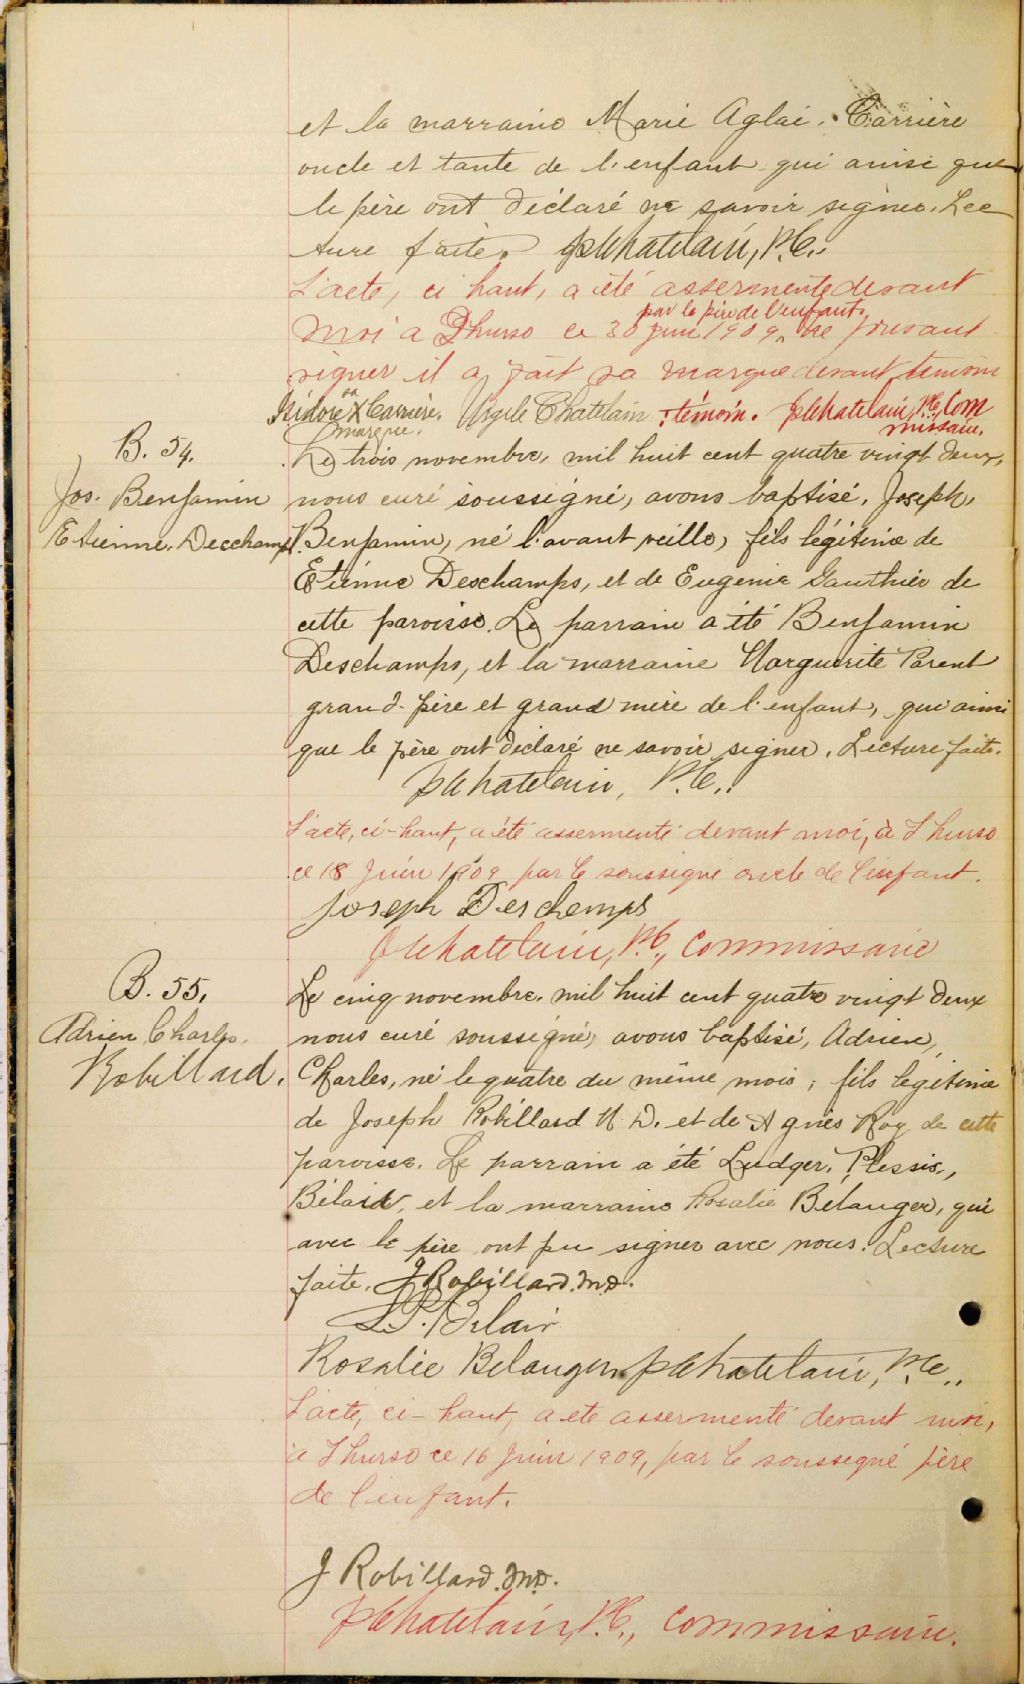 et la marraine Marie Aglaé Carrière
oncle et tante de l'enfant qui ainsi que
le père ont déclaré ne savoir signer. Lec
ture faite. JP Chatelain, P.C.,
L'acte, ci haut, a été assermenté devant
par le père de l'enfant.
moi a Thurso ce 30 Juin 1909, ne pouvant
signer il a fait sa marque devant témoin
Isidore sa X Carrière. Virgile Chatelain : témoin. JP Chatelain, P.C., Com
marque. missaire.
B. 54.
Jos. Benjamin
Etienne. Deschamps.
Le trois novembre, mil huit cent quatre vingt deux,
nous curé soussigné, avons baptisé, Joseph,
Benjamin, né l'avant veille, fils légitime de
Etienne Deschamps, et de Eugenie Gauthier de
cette paroisse. Le parrain a été Benjamin
Deschamps, et la marraine Marguerite Parent
grand-père et grand mère de l'enfant, qui ainsi
que le père ont déclaré ne savoir signer. Lecture faite.
JP Chatelain, P.C.,
L'acte, ci-haut, a été assermenté devant moi, à Thurso
ce 18 Juin 1909 par le soussigné oncle de l'enfant.
Joseph Deschemps
JP Chatelain, P.C., Commissaire
B. 55.
Adrien Charles.
Robillard.
Le cinq novembre. mil huit cent quatre vingt deux
nous curé soussigné, avons baptisé, Adrien,
Charles, né le quatre du même mois, fils legitime
de Joseph Robillard M D. et de Agnès Roy de cette
paroisse. Le parrain a été Ludger. Plessis.,
Bélair, et la marraine Rosalie Bélanger, qui
avec le père ont pu signer avec nous. Lecture
faite. J Robillard. M.D.
L.P. Belair
Rosalie Belanger JP Chatelain, P.C.,
L'acte, ci-haut, a eté assermenté devant moi,
à Thurso ce 16 Juin 1909, par le soussegné père
de l'enfant.
J Robillard. M.D.
JP Chatelain, P.C., Commissaire.